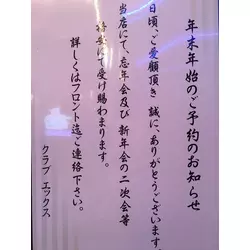 年末年始のご予約のお知らせ
日頃、ご愛顧頂き 誠に、ありがとうございます。
当店にて、忘年会及び 新年会の二次会等
特別にて受け賜わります。
詳しくはフロント迄ご連絡下さい。
クラブ エックス